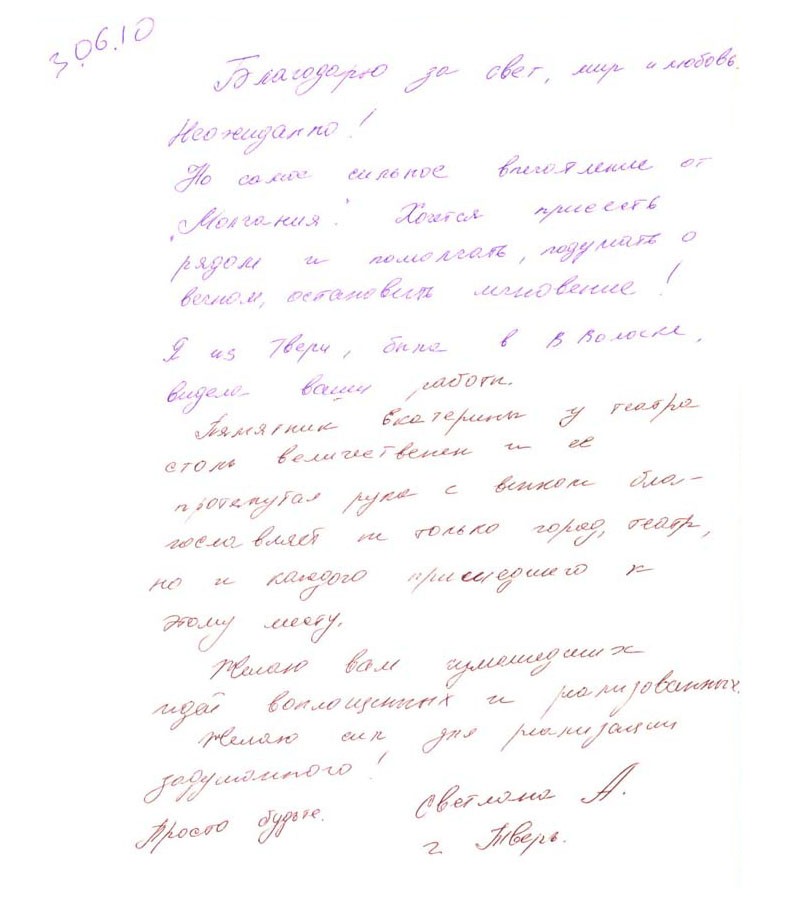 30.06.10
Благодарю за свет, мир и любовь.
Неожиданно!
Но самое сильное впечатление от
"Молчания". Хочется присесть
рядом и помолчать, подумать о
вечном, остановить мгновение!
Я из Твери, была в В Волочке,
видела ваши работы.
Памятник Екатерины у театра
столь величественен и ее
протянутая рука с венком бла-
гославляет не только город, театр,
но и каждого пришедшего к
этому месту.
Желаю вам сумашедших
идей воплощенных и реализованных.
Желаю сил для реализации
задуманного!
Просто будьте.
Светлана А.
г Тверь.